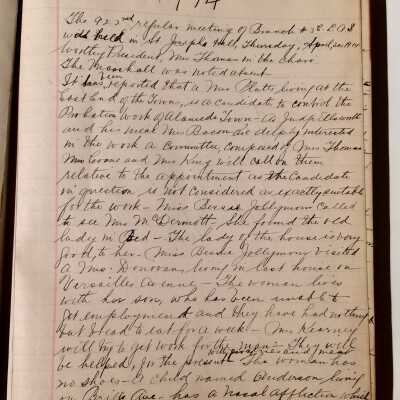 194
The 922nd regular meeting of Branch # 32 L O S
was held in St. Josephs Hall, Thursday, April
Worthy President, Mrs Thomas in the Chair
The Marshall was noted absent
It has been reported that a Mrs Platter living at the
East End of the Town, is a candidate to control the
Probation work of Alameda Town - As Judge Ellsworth
and his friend Mrs Bacon are deeply interested
in the work a Committee, composed of Mrs Thomas
Mrs and Mrs King will call on them
relative to the appointment as the Candidate
in question is not considered as exactly suitable
for the work - Miss Bessie Jollymour called
to see Mrs McDermott - She found the old
lady in Bed - The lady of the house is very
good to her. Miss Bessie Jollymour visited
a Mrs. Donovan, living in last house on
Versailles Avenue - The woman lives
with her son, who has been unable to
get employment and they have had nothing
but bread to eat for a week - Mrs Kearney
will try to get work for the man - They will
be helped, for the present with groceries and meat
The woman has
no shoes - A child named Henderson living
on Ave - has a Nasal affliction which